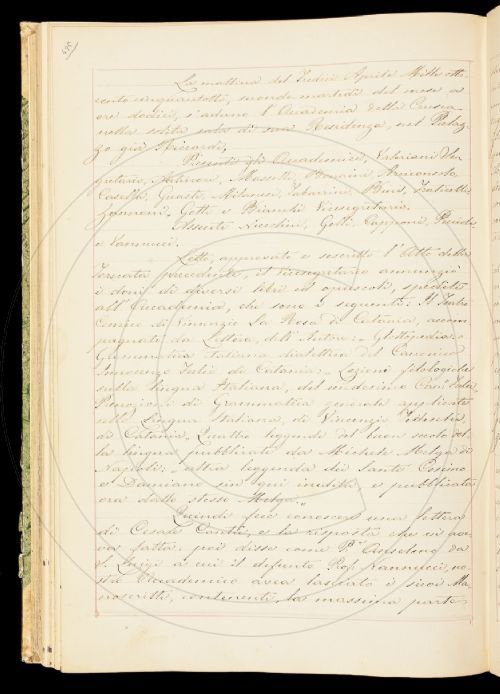 La mattina del Tredici Aprile Mille otto
cento cinquantotto, secondo martedì del mese a
ore dodici, s'aduna l'Accademia della Crusca
nella solita sala di sua Residenza, nel Palaz-
zo già Riccardi.
Presenti gli Accademici, Valeriani
gretario, Masselli,
Casella, Guasti, Milanesi, Tabarrini, Bini, Fraticelli,
Zannoni, Gotti e Bianchi Vicesegretario.
Assenti Arcivescovi, Gelli, Capponi,
e Vannucci.
Letto, approvato e soscritto l'Atto della
Tornata precedente, il Vicesegretario annunziò
i doni di diversi libri ed opuscoli, spediti
all'Accademia, che sono i seguenti: Il Teatro
Comico di Vincenzio La Rosa di Catania, accom
pagnato da Lettera dell'Autore:
Grammatica italiana dialettica del Canonico
Innocenzo di Catania: Lezioni filologiche
sulla lingua Italiana, del medesimo Can.
di Grammatica generale applicate
alla Lingua Italiana, di Vincenzo
di Catania. Quattro leggende del buon secolo del
la lingua pubblicate da Michele Melga di
Napoli: altra leggenda dei Santi Cosimo
e Damiano sin qui inedita, e pubblicata
ora dallo stesso Melga.
Quindi fece conoscere una lettera
di Cesare Cantù, e la risposta che vi
va fatta: poi disse come P. Anselmo da
S. Luigi a cui il defunto Prof. Nannucci, no
stro Accademico avea lasciato i suoi Ma
noscritti, contenenti la massima parte